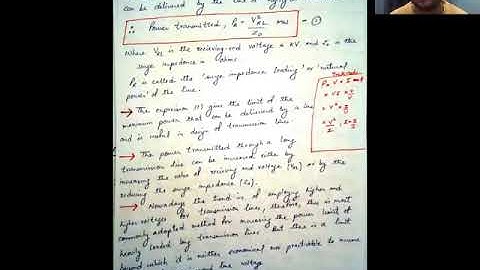 can be delivered by the line is
∴ Power transmitted, P_R = V²_RL / Z_0 MW — ①
Where V_RL is the recieving-end voltage in kV and Z_0 is the
surge impedance in ohms.
P_R is called the 'surge impedance loading' or 'natural
power' of the line.
→ The expression (1) gives the limit of the
maximum power that can be delivered by a line
and is useful in design of transmission lines.
→ The power transmitted through a long
transmission line can be increased either by
increasing the value of recieving end voltage (V_RL) or by the
reducing the surge impedance (Z_0).
→ Nowadays the trend is of employing higher and
higher voltages for transmission lines, therefore, this is most
commonly adopted method for increasing the power limit of
heavily loaded long transmission lines. But there is a limit
beyond which it is neither economical nor practicable to increase
line voltage